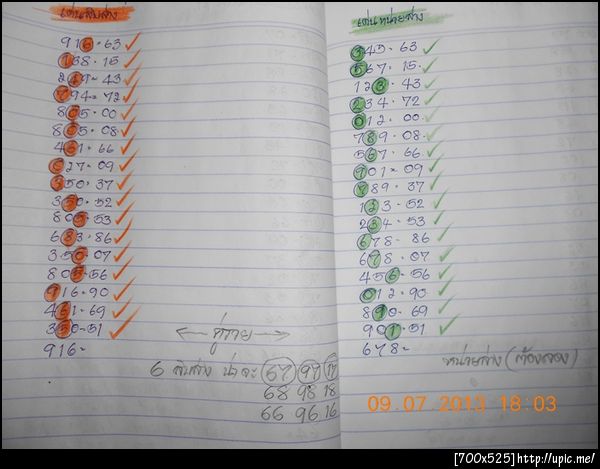 เด่นสิบล่าง
916-63 ✓
158-15 ✓
249-43 ✓
794-72 ✓
805-00 ✓
805-08 ✓
461-66 ✓
627-09 ✓
350-37 ✓
350-52 ✓
805-53 ✓
683-86 ✓
350-07 ✓
805-56 ✓
916-90 ✓
461-69 ✓
350-51 ✓
916-
เด่นหน่วยล่าง
345-63 ✓
567-15 ✓
123-43 ✓
234-72 ✓
012-00 ✓
789-08 ✓
567-66 ✓
901-09 ✓
789-37 ✓
123-52 ✓
234-53 ✓
678-86 ✓
678-07 ✓
456-56 ✓
012-90 ✓
890-69 ✓
901-51 ✓
678-
6 สิบล่าง น่าจะ 67 97 17
68 98 18
66 96 16
หน่วยล่าง (ต้องลอง)
09.07.2013 18:03
[700x525]http://upic.me/